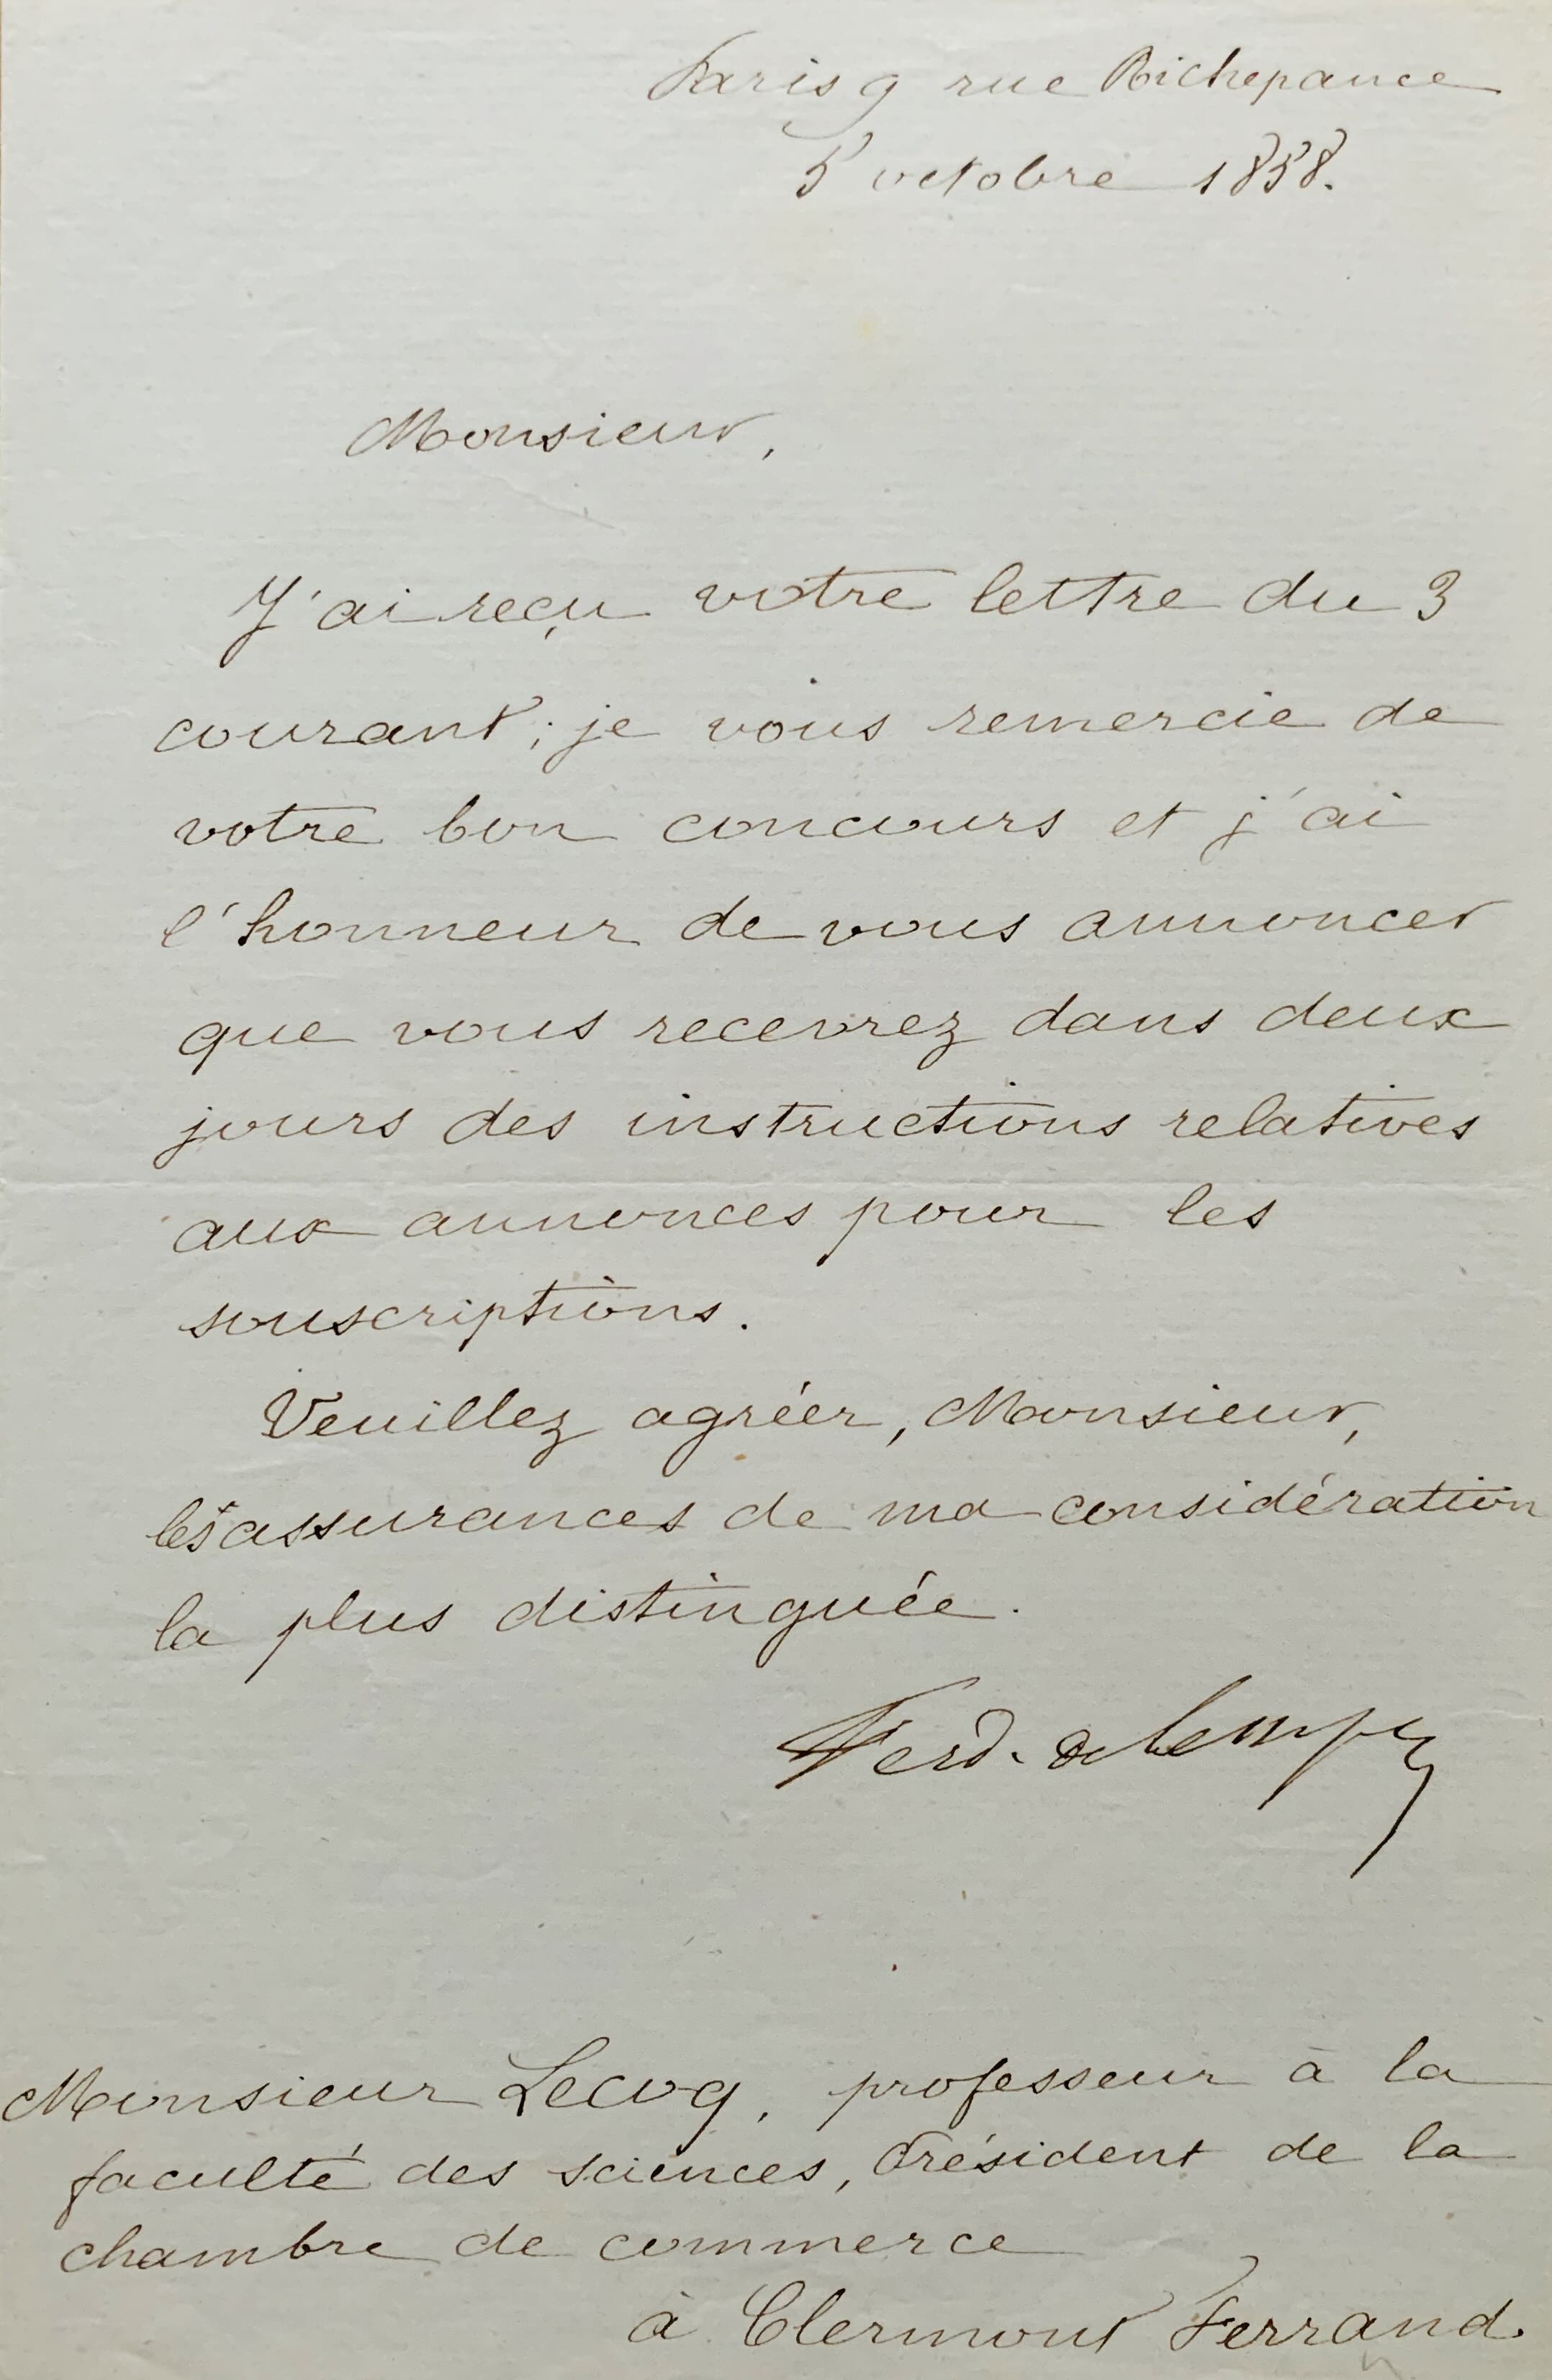 Paris 9 rue Richepance
5 octobre 1858.
Monsieur,
J'ai reçu votre lettre du 3
courant; je vous remercie de
votre bon concours et j'ai
l'honneur de vous annoncer
que vous recevrez dans deux
jours des instructions relatives
aux annonces pour les
souscriptions.
Veuillez agréer, Monsieur,
les assurances de ma considération
la plus distinguée.
Ferd. de Lesseps
Monsieur Lecoq, professeur à la
faculté des sciences, Président de la
chambre de commerce
à Clermont Ferrand.